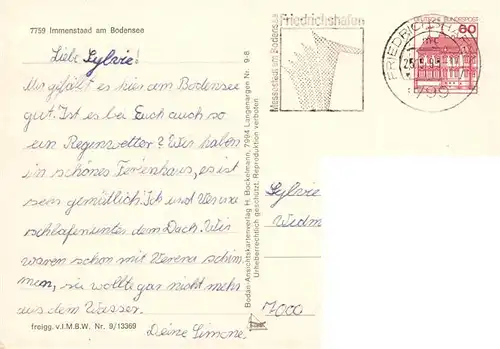 7759 Immenstaad am Bodensee
Liebe Sylvie!
Mir gefällt es hier am Bodensee
gut. Ist es bei Euch auch so
ein Regenwetter? Wir haben
ein schönes Ferienhaus, es ist
sehr gemütlich. Ich und Verena
schlafen unter dem Dach. Wir
waren schon mit Verena schwim-
men, sie wollte gar nicht mehr
aus dem Wasser.
Deine Simone.
freigg. v.I.M.B.W. Nr. 9/13369
Bodan-Ansichtskartenverlag H. Bockelmann, 7994 Langenargen Nr. 9-8
Urheberrechtlich geschützt. Reproduktion verboten
Messestadt am Bodensee
Friedrichshafen
DEUTSCHE BUNDESPOST
60
FRIEDRICHSHAFEN
799
Sylvie
Widm
7000